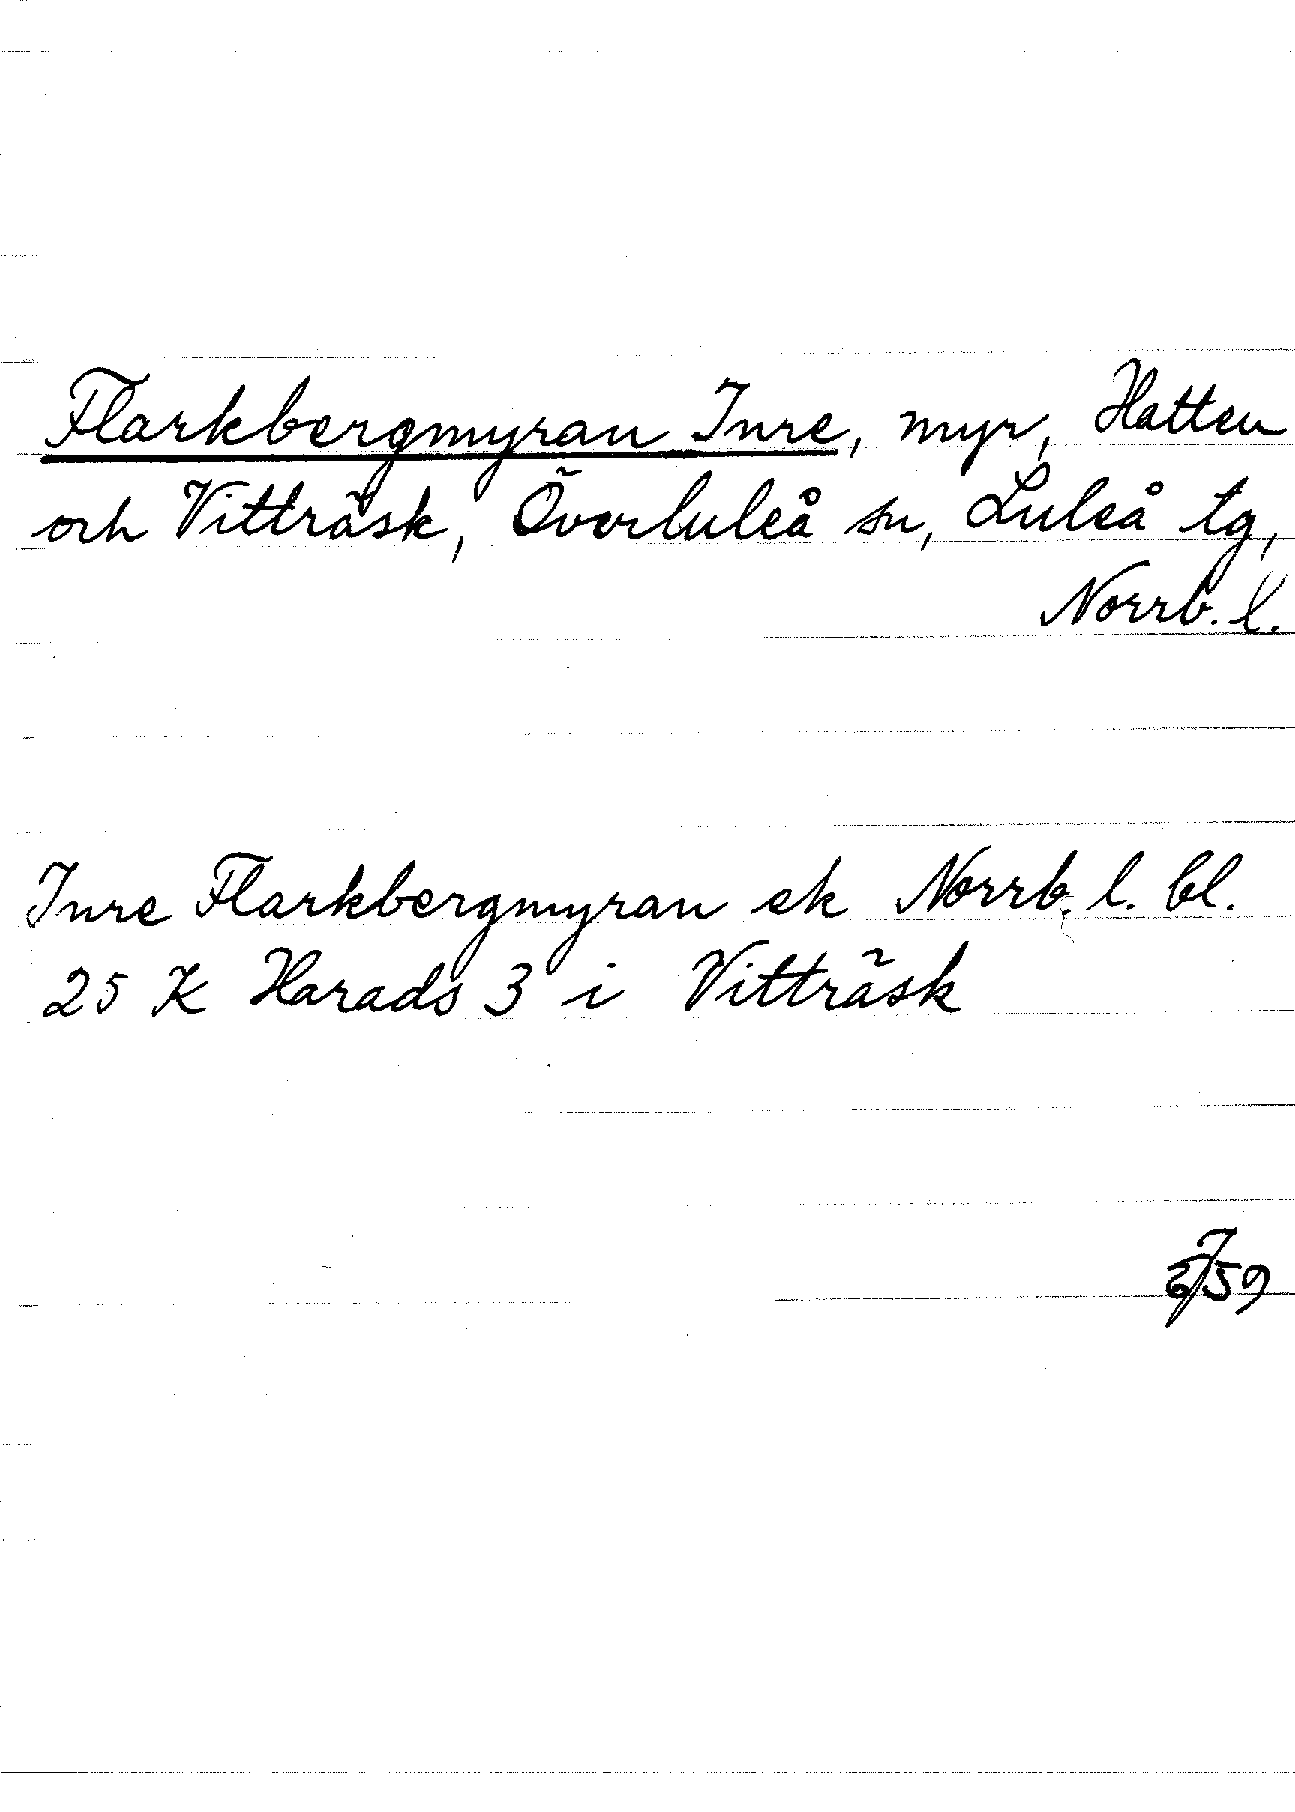 Flarkbergmyran Inre, myr, Hatten
och Vitträsk, Överluleå sn, Luleå tg,
Norrb. l.
Inre Flarkbergmyran ek Norrb. l. bl.
25 K Harads 3 i Vitträsk